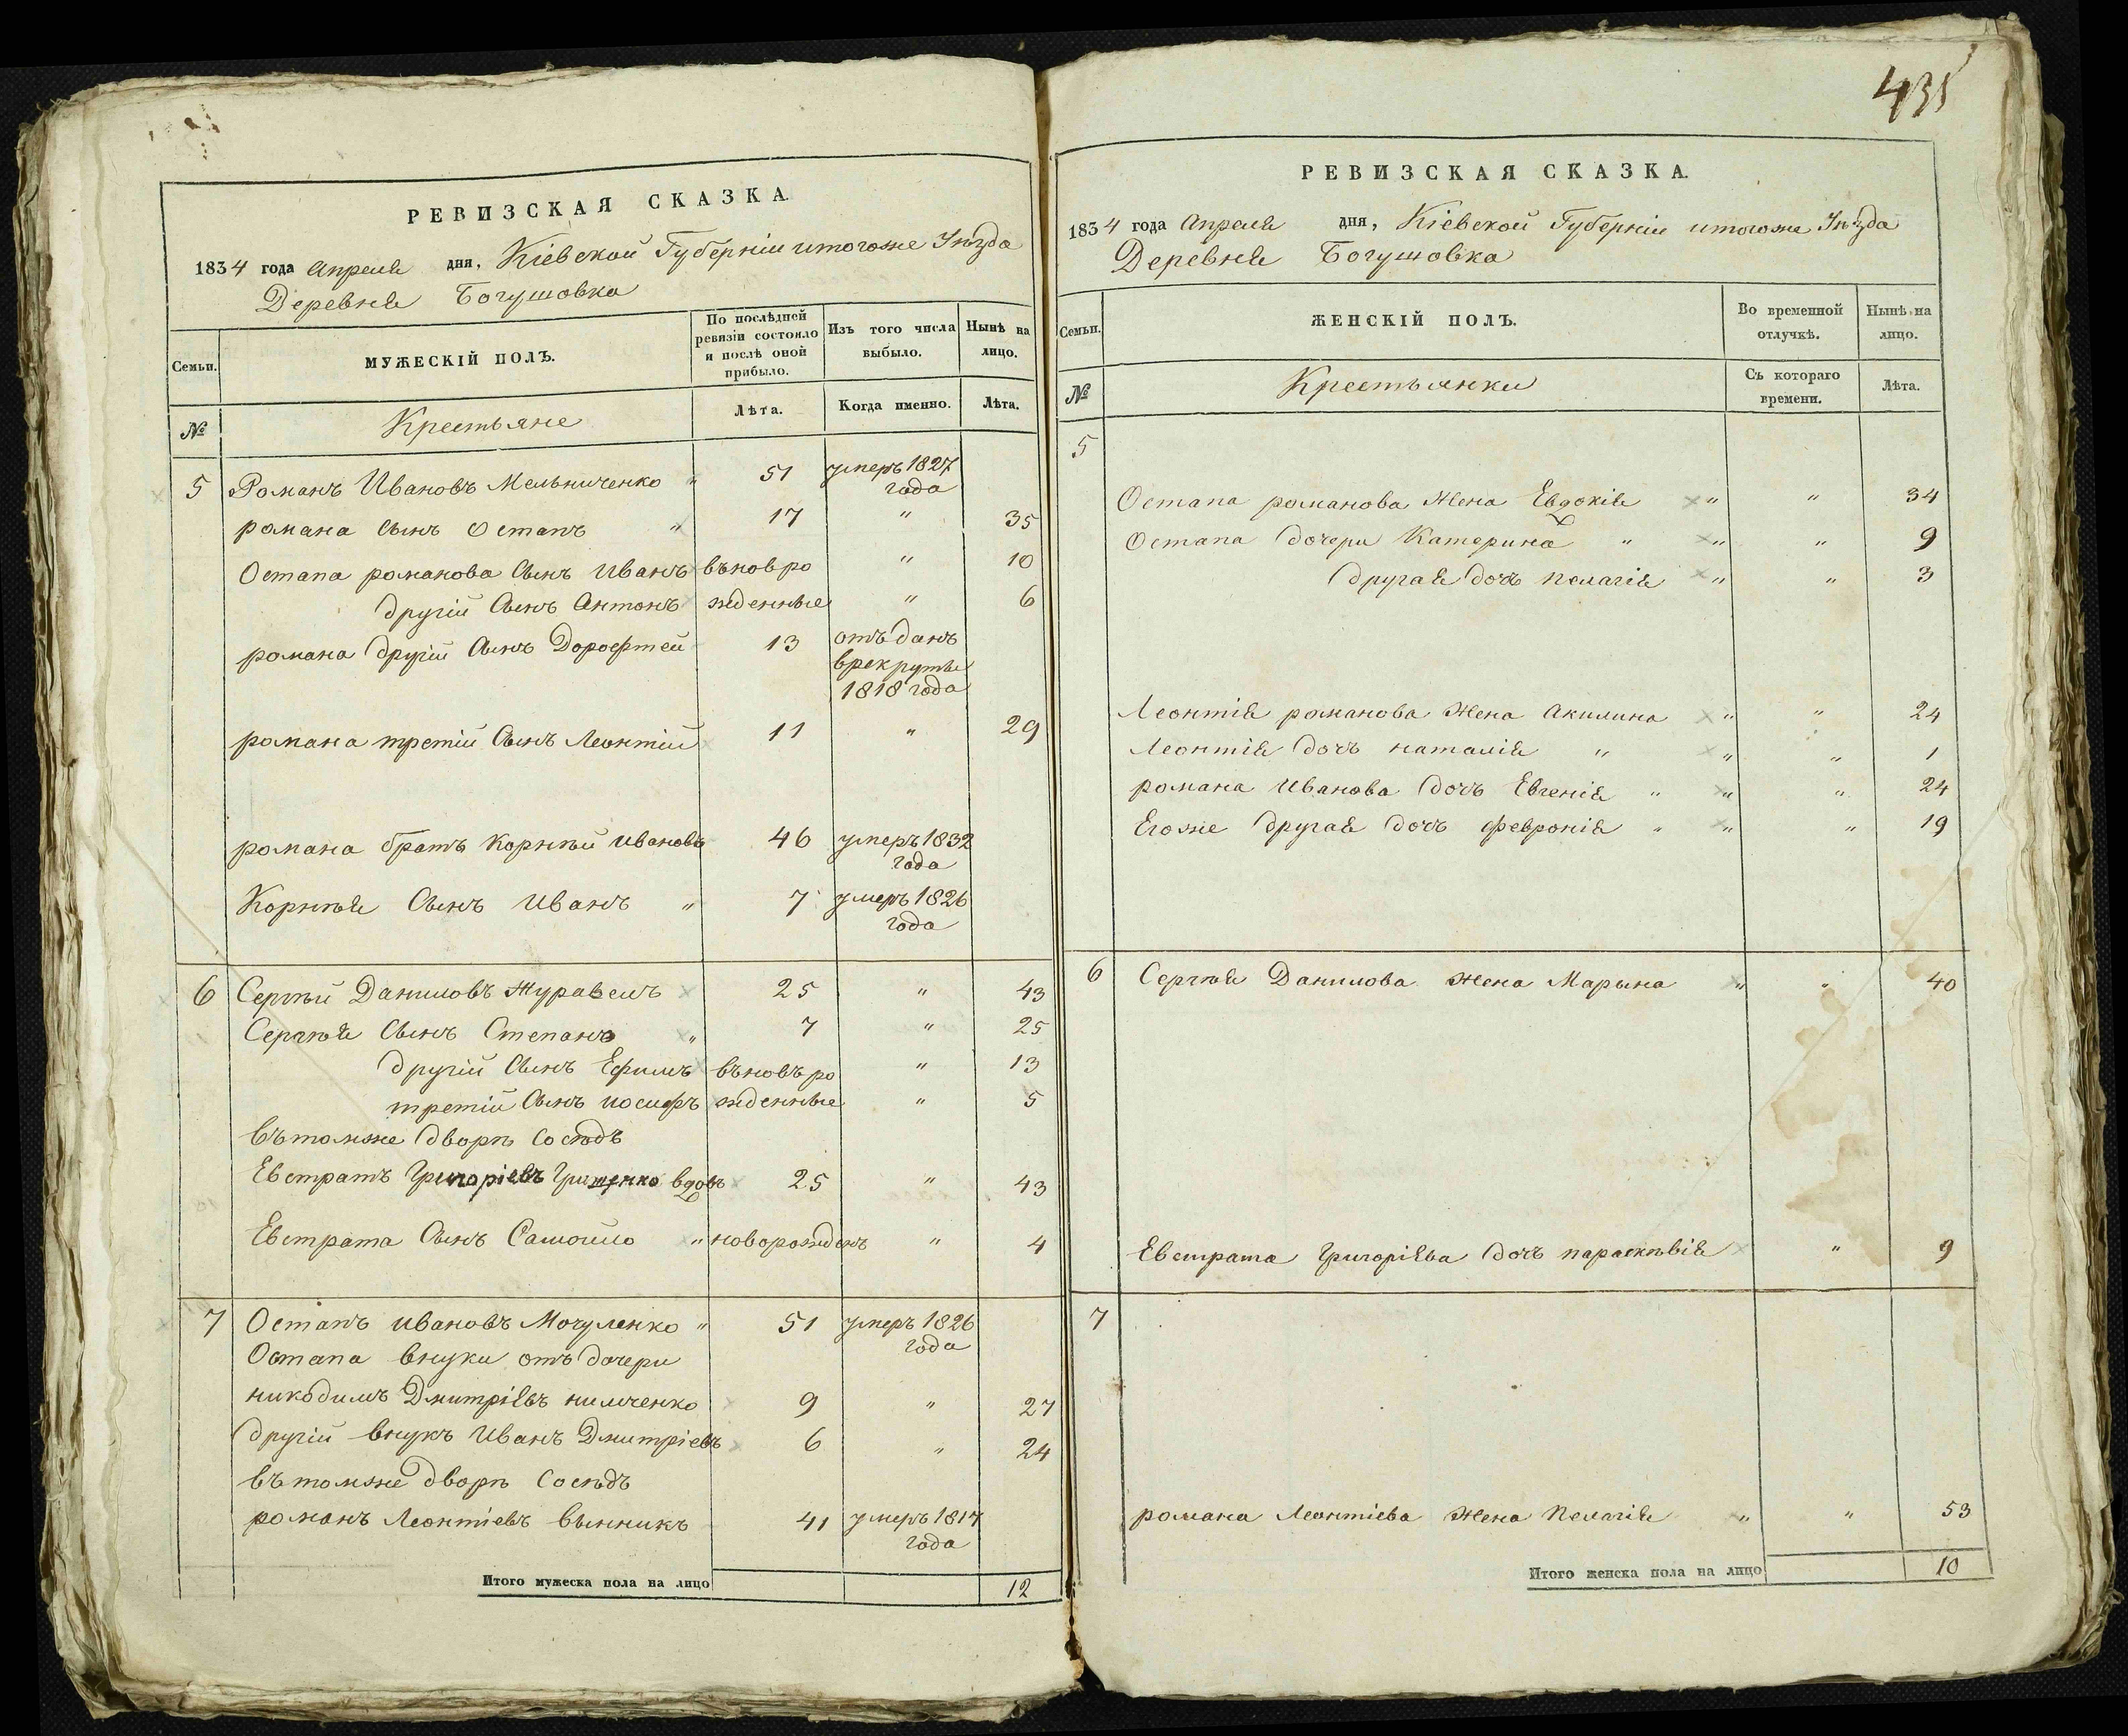 435
РЕВИЗСКАЯ СКАЗКА.
1834 года Апреля дня, Кіевской Губерніи итогоже Уѣзда
Деревня Богушовка
Семьи.
МУЖЕСКІЙ ПОЛЪ.
По послѣдней ревизіи состояло и послѣ оной прибыло.
Изъ того числа выбыло.
Нынѣ на лицо.
№
Крестьяне
Лѣта.
Когда именно.
Лѣта.
5 Романъ Ивановъ Мельниченко " 51 умеръ 1827 года
романа Сынъ Остапъ " 17 " 35
Остапа романова Сынъ Иванъ въновро " 10
другій Сынъ Антонъ жденные " 6
романа другій Сынъ Дорофтей 13 отъданъ
врекруты
1818 года
романа третій Сынъ Леонтій 11 " 29
романа братъ Корнѣй ивановъ 46 умеръ 1832
года
Корнѣя Сынъ Иванъ " 7 умеръ 1826
года
6 Сергѣй Даниловъ Журавель 25 " 43
Сергѣя Сынъ Степанъ " 7 " 25
другій Сынъ Ефимъ въновъро " 13
третій Сынъ иосифъ жденные " 5
вътомже дворѣ Сосѣдъ
Евстратъ Григоріевъ Грищенко вдовъ 25 " 43
Евстрата Сынъ Самойло " новорожденъ " 4
7 Остапъ ивановъ Мочуленко " 51 умеръ 1826
года
Остапа внуки отъ дочери
никодимъ Дмитріевъ нимченко 9 " 27
другій внукъ Иванъ Дмитріевъ 6 " 24
вътомже дворѣ Сосѣдъ
романъ Леонтіевъ вынникъ 41 умеръ 1817
года
Итого мужеска пола на лицо 12
РЕВИЗСКАЯ СКАЗКА.
1834 года Апреля дня, Кіевской Губерніи итогоже Уѣзда
Деревня Богушовка
Семьи.
ЖЕНСКІЙ ПОЛЪ.
Во временной отлучкѣ.
Нынѣ на лицо.
№
Крестьянки
Съ котораго времени.
Лѣта.
5
Остапа романова Жена Евдокія " " 34
Остапа дочери Катерина " " " 9
другая дочь пелагія " " 3
Леонтія романова Жена Акилина " " 24
Леонтія дочь наталія " " " 1
романа Иванова дочь Евгенія " " " 24
Егоже другая дочь февронія " " " 19
6 Сергѣя Данилова Жена Марына " " 40
Евстрата Григоріева дочь параскѣвія " 9
7
романа Леонтіева Жена Пелагія " " 53
Итого женска пола на лицо 10